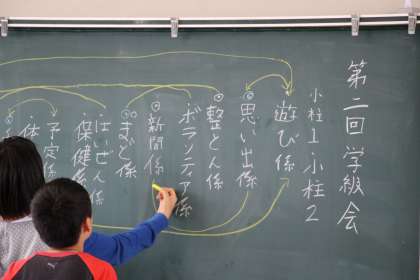 第二回学級会
小柱1小柱2
遊び係
思い出係
整とん係
ボランティア係
新聞係
まど係
はいぜん係
保健係
予定係
体